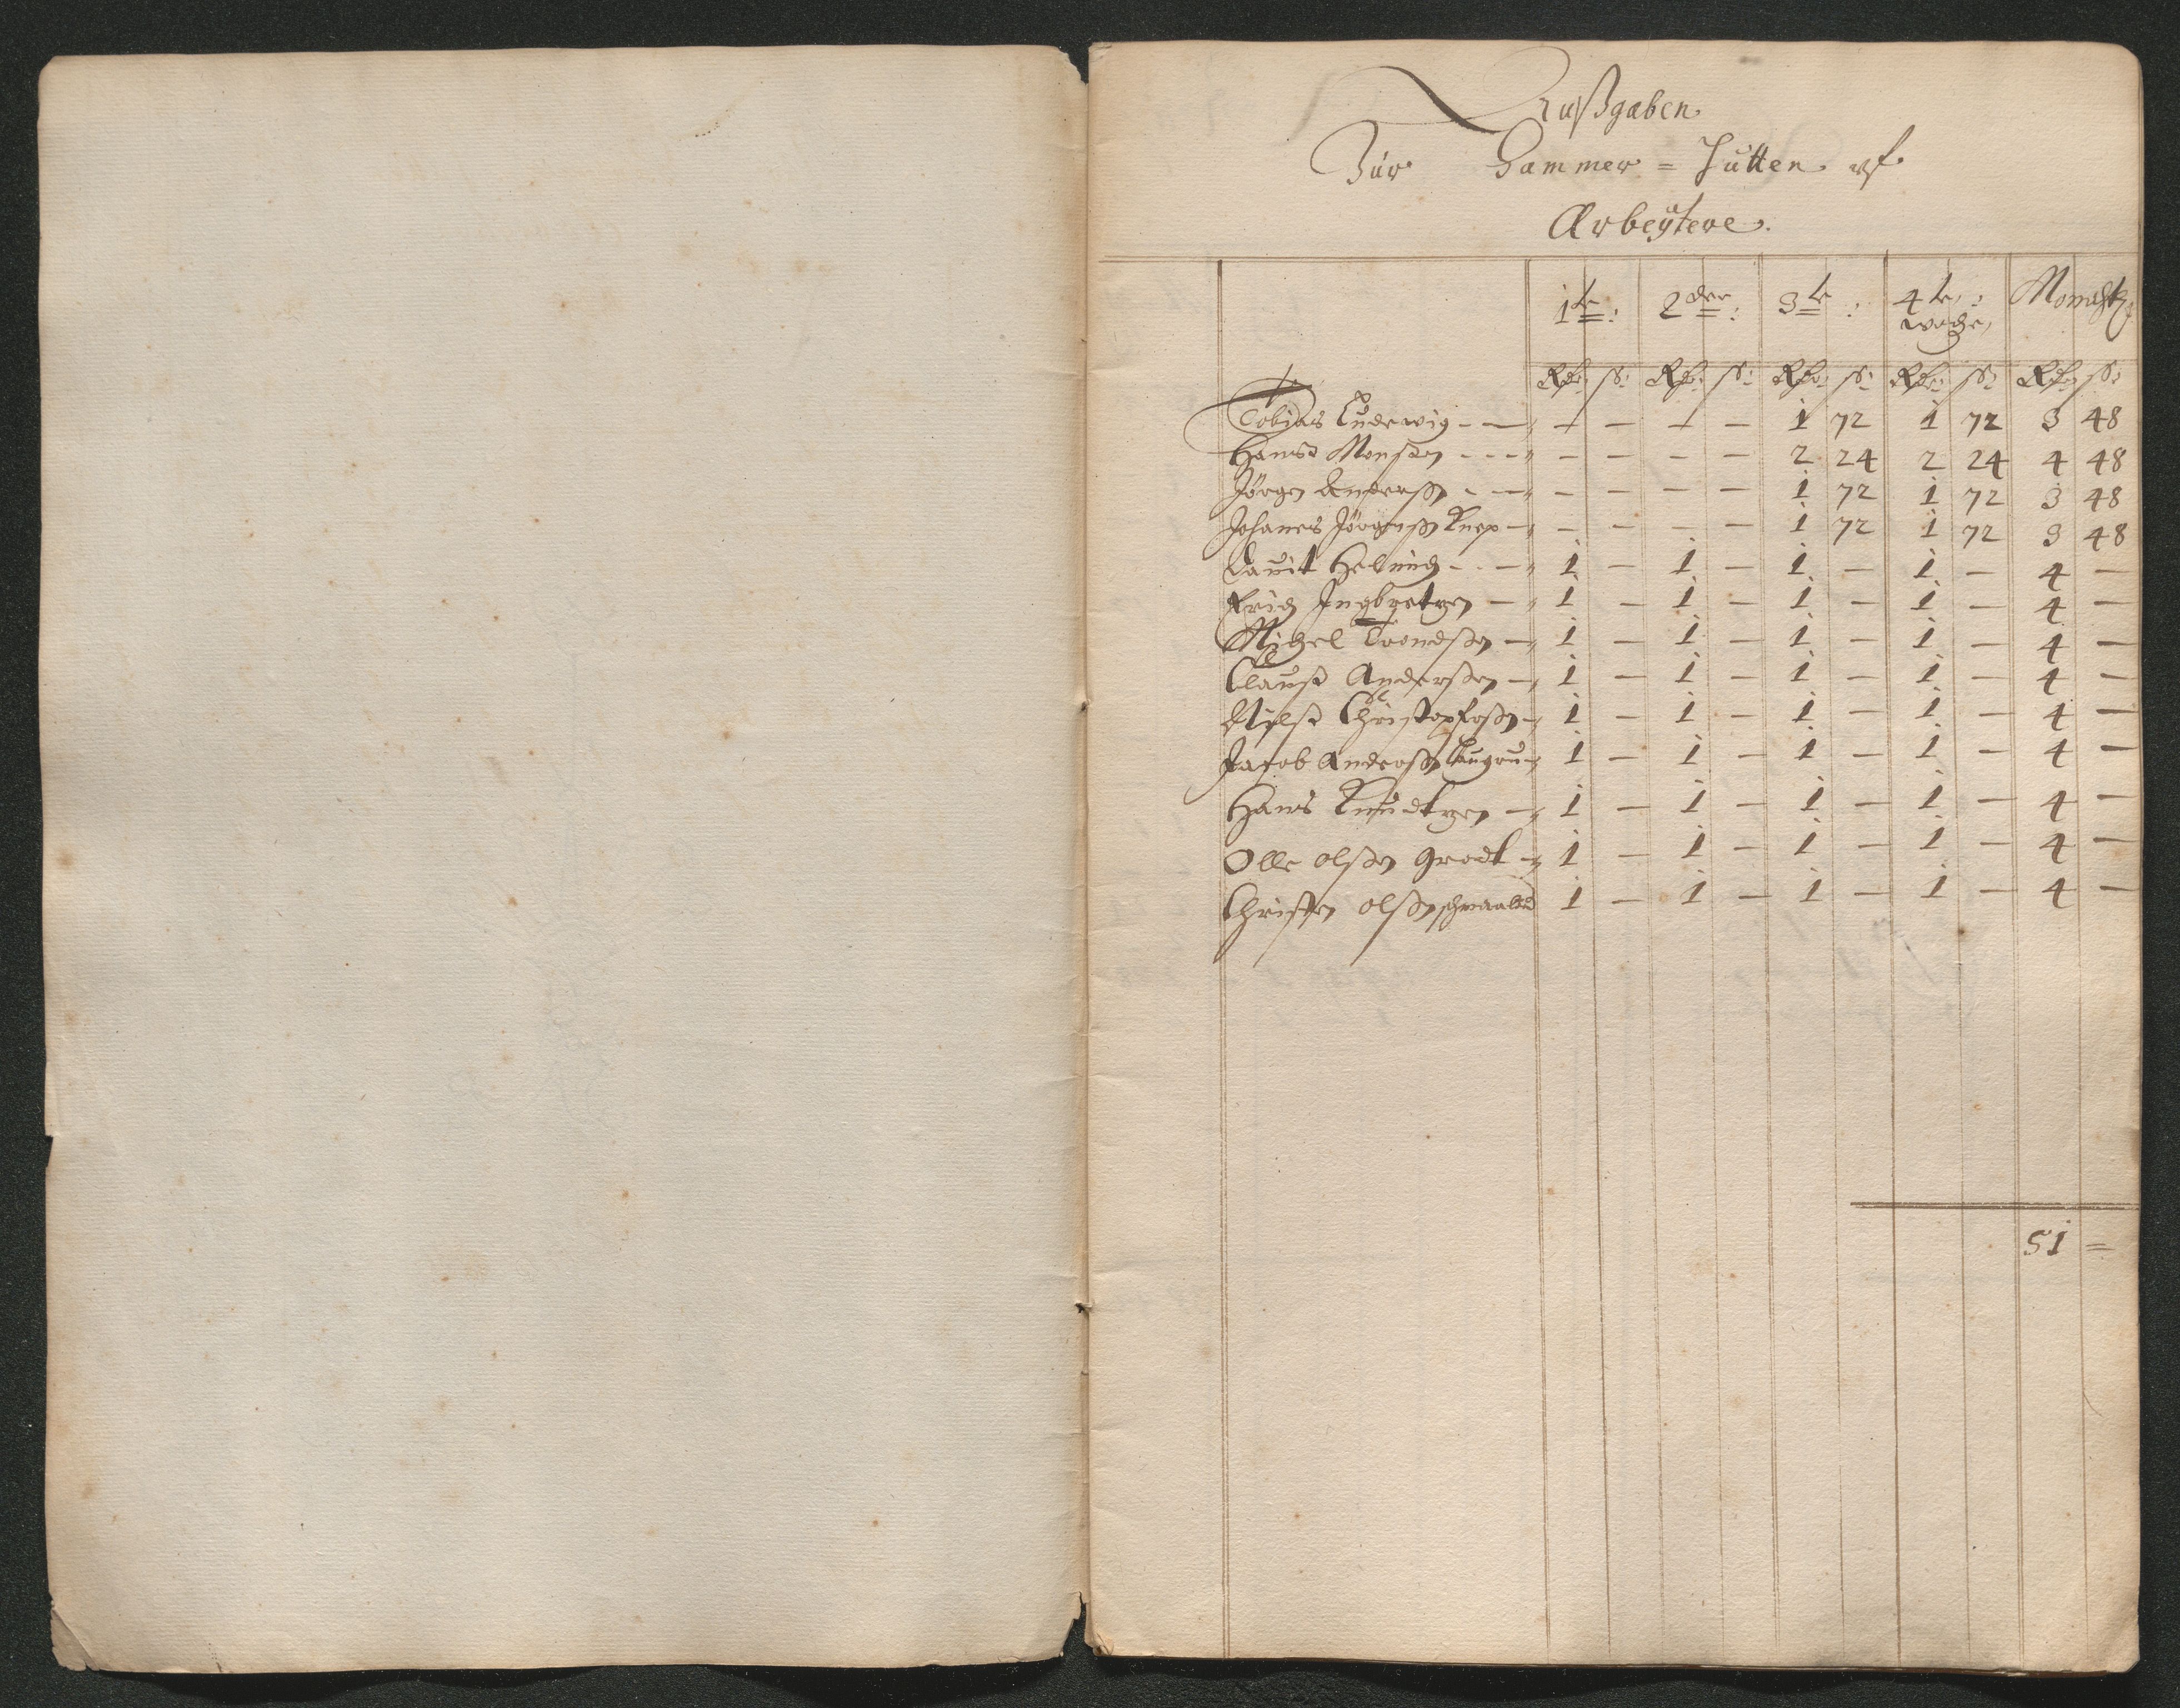 Außgaben
Zur Hammer = Hütten uf
Arbeÿtere.
1te: 2der: 3te: 4te: Monahtz
woche,
Rdr: ß: Rdr: ß: Rdr: ß: Rdr: ß: Rdr: ß:
Tobias Ludewig - — — — — — 1 72 1 72 3 48
Hanß Monßen - - - — — — — 2 24 2 24 4 48
Jörgen Anderß: - — — — — — 1 72 1 72 3 48
Johanes Jörgenß: Knep — — — — — 1 72 1 72 3 48
Dauit - - — 1 — 1 — 1 — 1 — 4 —
Erich Ingbretzen — 1 — 1 — 1 — 1 — 4 —
Michel Trondßen — 1 — 1 — 1 — 1 — 4 —
Clauß Anderßen — 1 — 1 — 1 — 1 — 4 —
Nilß Christopferß: — 1 — 1 — 1 — 1 — 4 —
Jacob Anderß: 1 — 1 — 1 — 1 — 4 —
Hans Knudtzen — 1 — 1 — 1 — 1 — 4 —
Olle olßen Grodt — 1 — 1 — 1 — 1 — 4 —
Christen olßen 1 — 1 — 1 — 1 — 4 —
51 =